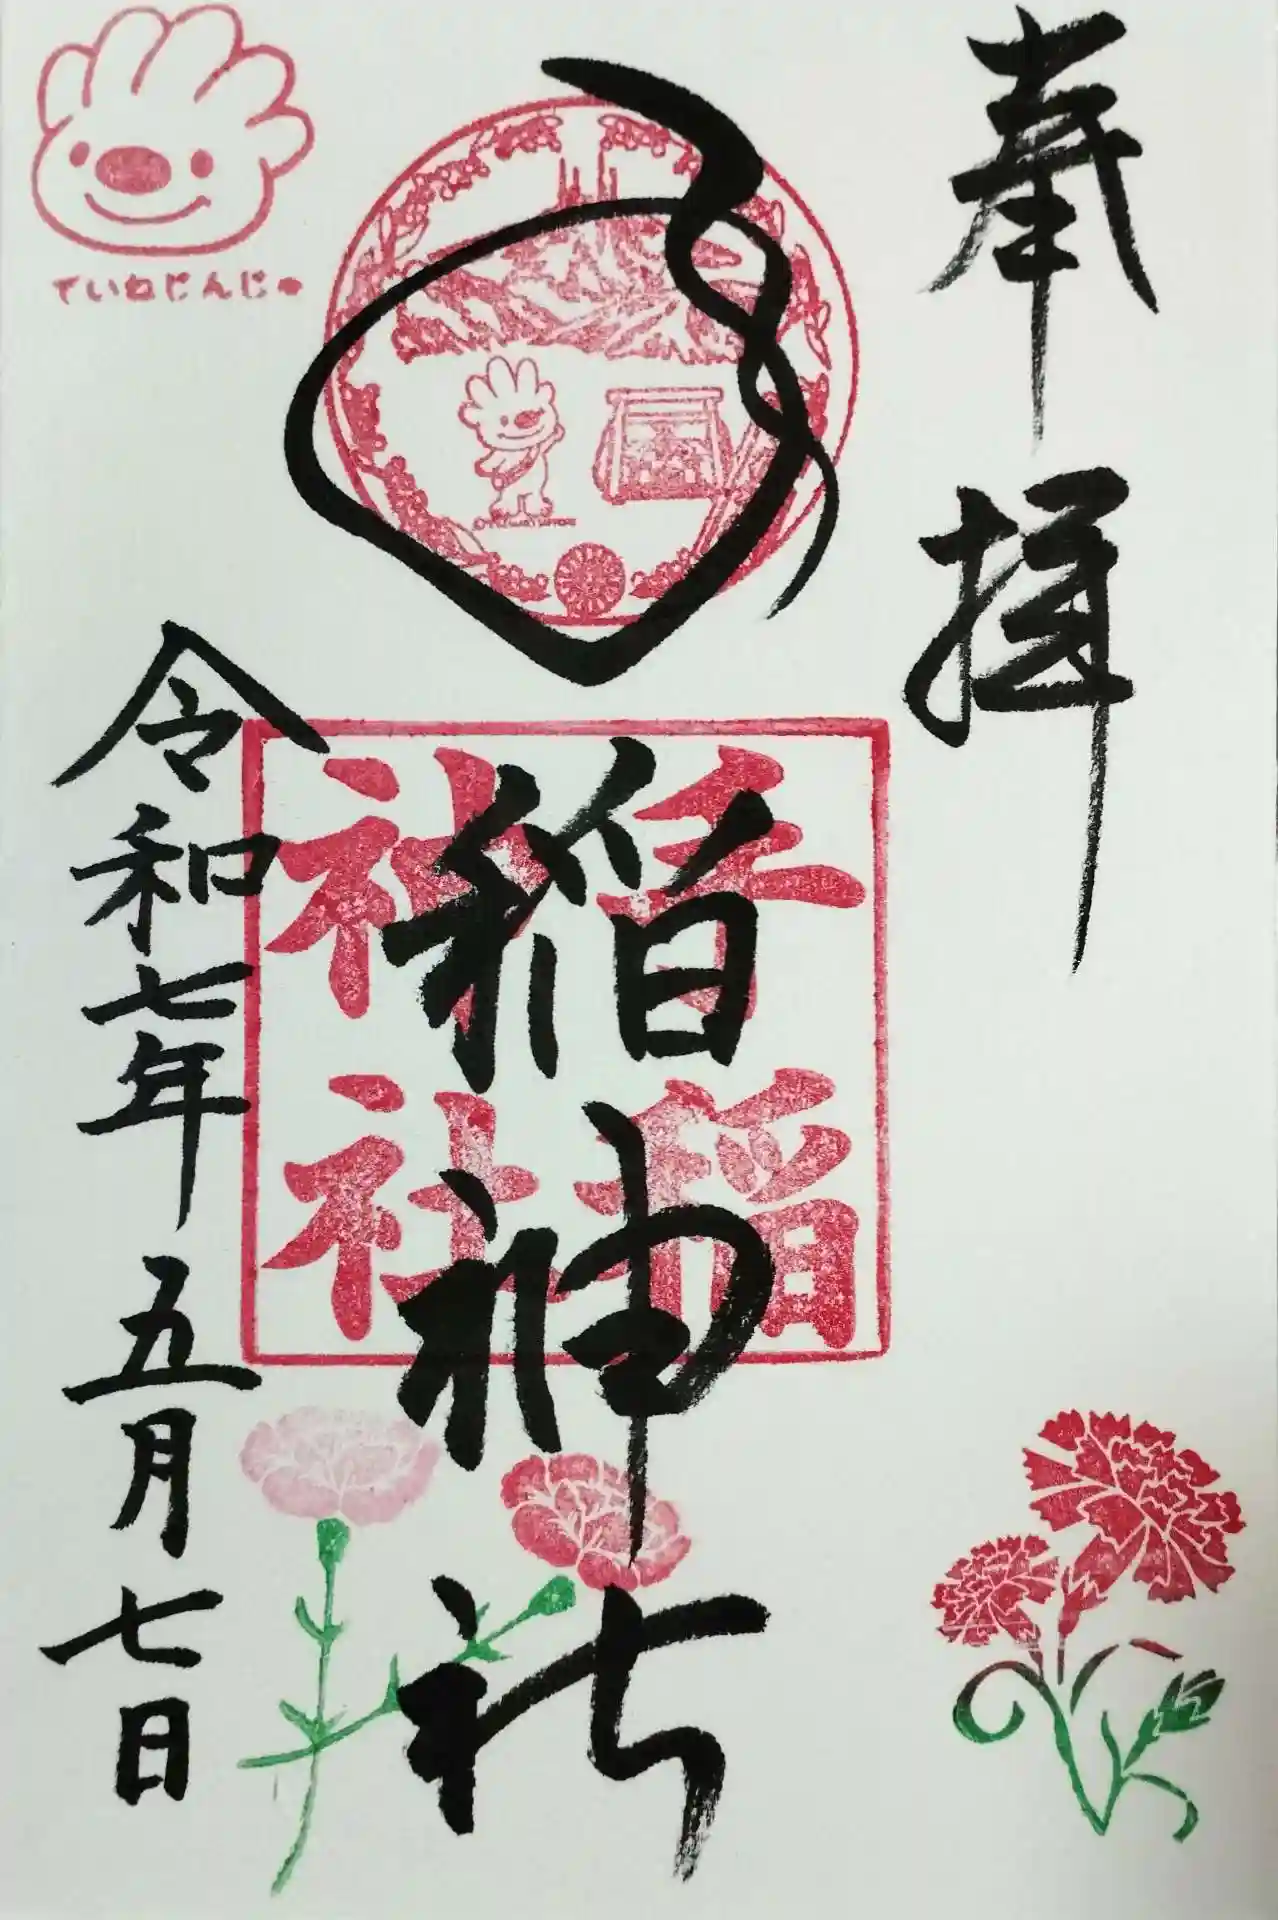 奉拝
手稲神社
手稲
神社
令和七年五月七日
ていねじんじゃ